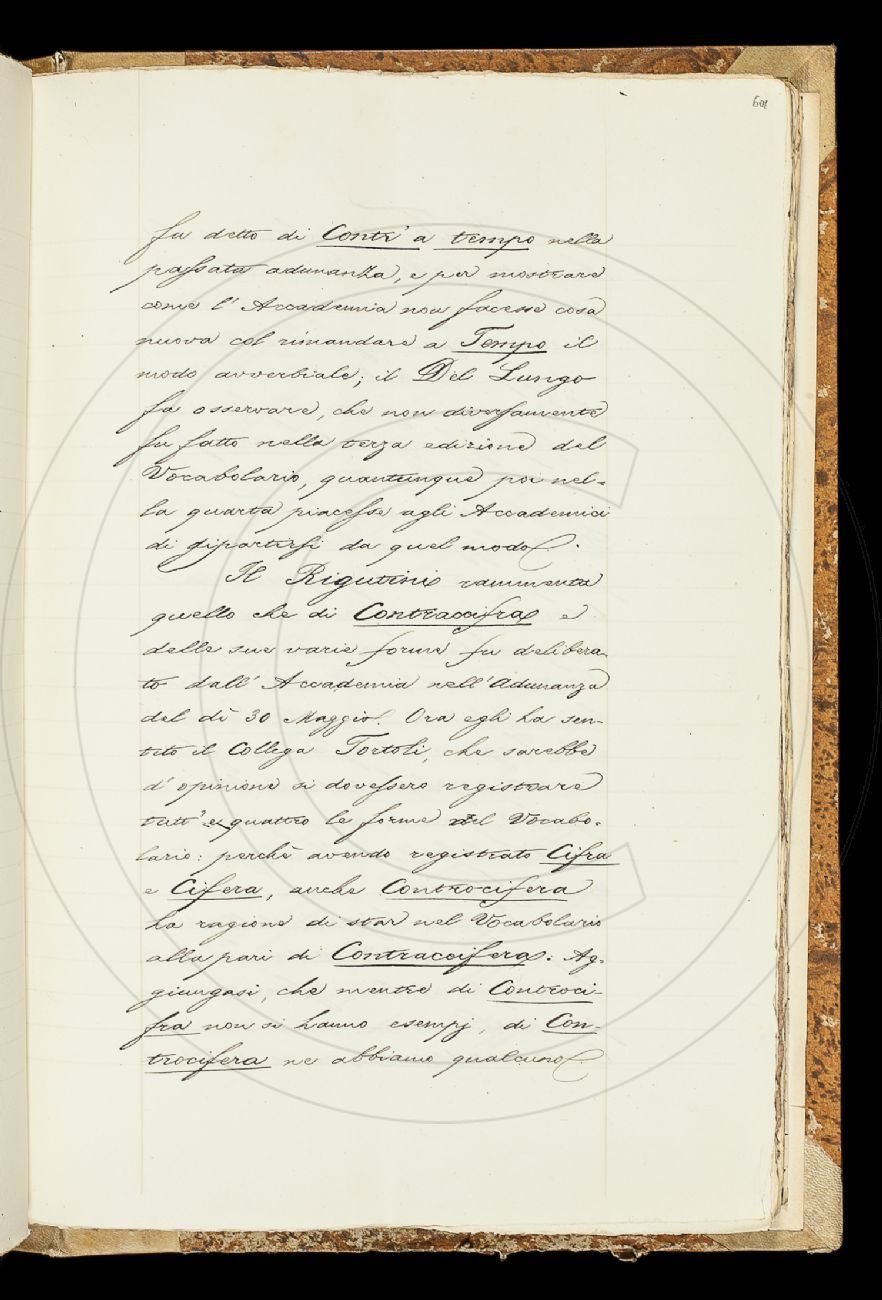 601
fu detto di Contr' a tempo nella
passata adunanza, e per mostrare
come l' Accademia non facesse cosa
nuova col rimandare a Tempo il
modo avverbiale; il Del Lungo
fa osservare, che non diversamente
fu fatto nella terza edizione del
Vocabolario, quantunque poi nel-
la quarta piacesse agli Accademici
di dipartirsi da quel modo.
Il Rigutini rammenta
quello che di Contraccifra e
delle sue varie forme fu delibera-
to dall' Accademia nell' Adunanza
del dì 30 Maggio. Ora egli ha sen-
tito il Collega Tortoli, che sarebbe
d' opinione si dovessero registrare
tutt' e quattro le forme nel Vocabo-
lario: perchè avendo registrato Cifra
e Cifera, anche Controcifera
ha ragione di star nel Vocabolario
alla pari di Contraccifera. Ag-
giungasi, che mentre di Controci-
fra non si hanno esempj, di Con-
trocifera ne abbiamo qualcuno.